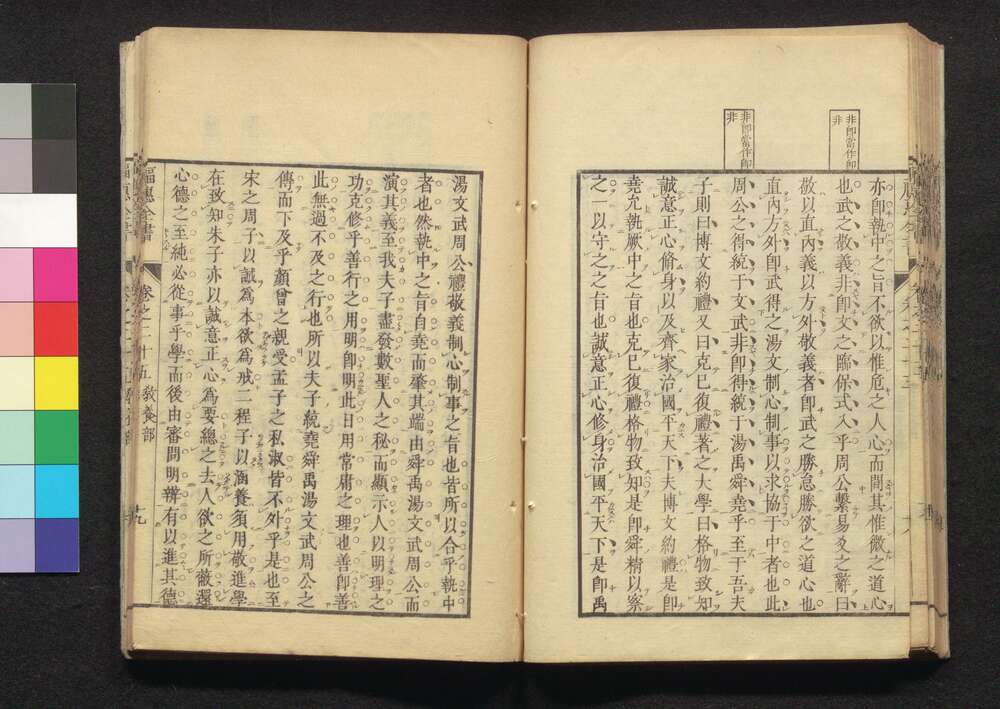 非卽當作卽
非
非卽當作卽
非
亦卽執中之旨不欲以惟危之人心而閒其惟微之道心
也武之敬義非卽文之臨保式入乎周公繫易爻之辭曰
敬以直內義以方外敬義者卽武之勝怠勝欲之道心也
直內方外卽武得之湯文制心制事以求協于中者也此
周公之得統于文武非卽得統于湯禹舜堯乎至于吾夫
子則曰博文約禮又曰克已復禮著之大學曰格物致知
誠意正心脩身以及齊家治國平天下夫博文約禮是卽
堯允執厥中之旨也克已復禮格物致知是卽舜精以察
之一以守之之旨也誠意正心修身治國平天下是卽禹
湯文武周公禮敬義制心制事之旨也皆所以合乎執中
者也然執中之旨自堯而肇其端由舜禹湯文武周公而
演其義至我夫子盡發數聖人之秘而顯示人以明理之
功克修乎善行之用明卽明此日用常庸之理也善卽善
此無過不及之行也所以夫子統堯舜禹湯文武周公之
傳而下及乎顏曾之親受孟子之私淑皆不外乎是也至
宋之周子以誠爲本欲爲戒二程子以涵養須用敬進學
在致知朱子亦以誠意正心爲要總之去人欲之所蔽還
心德之至純必從事乎學而後由審問明辨有以進其德
福惠全書 卷之二十五 敎養部 十九